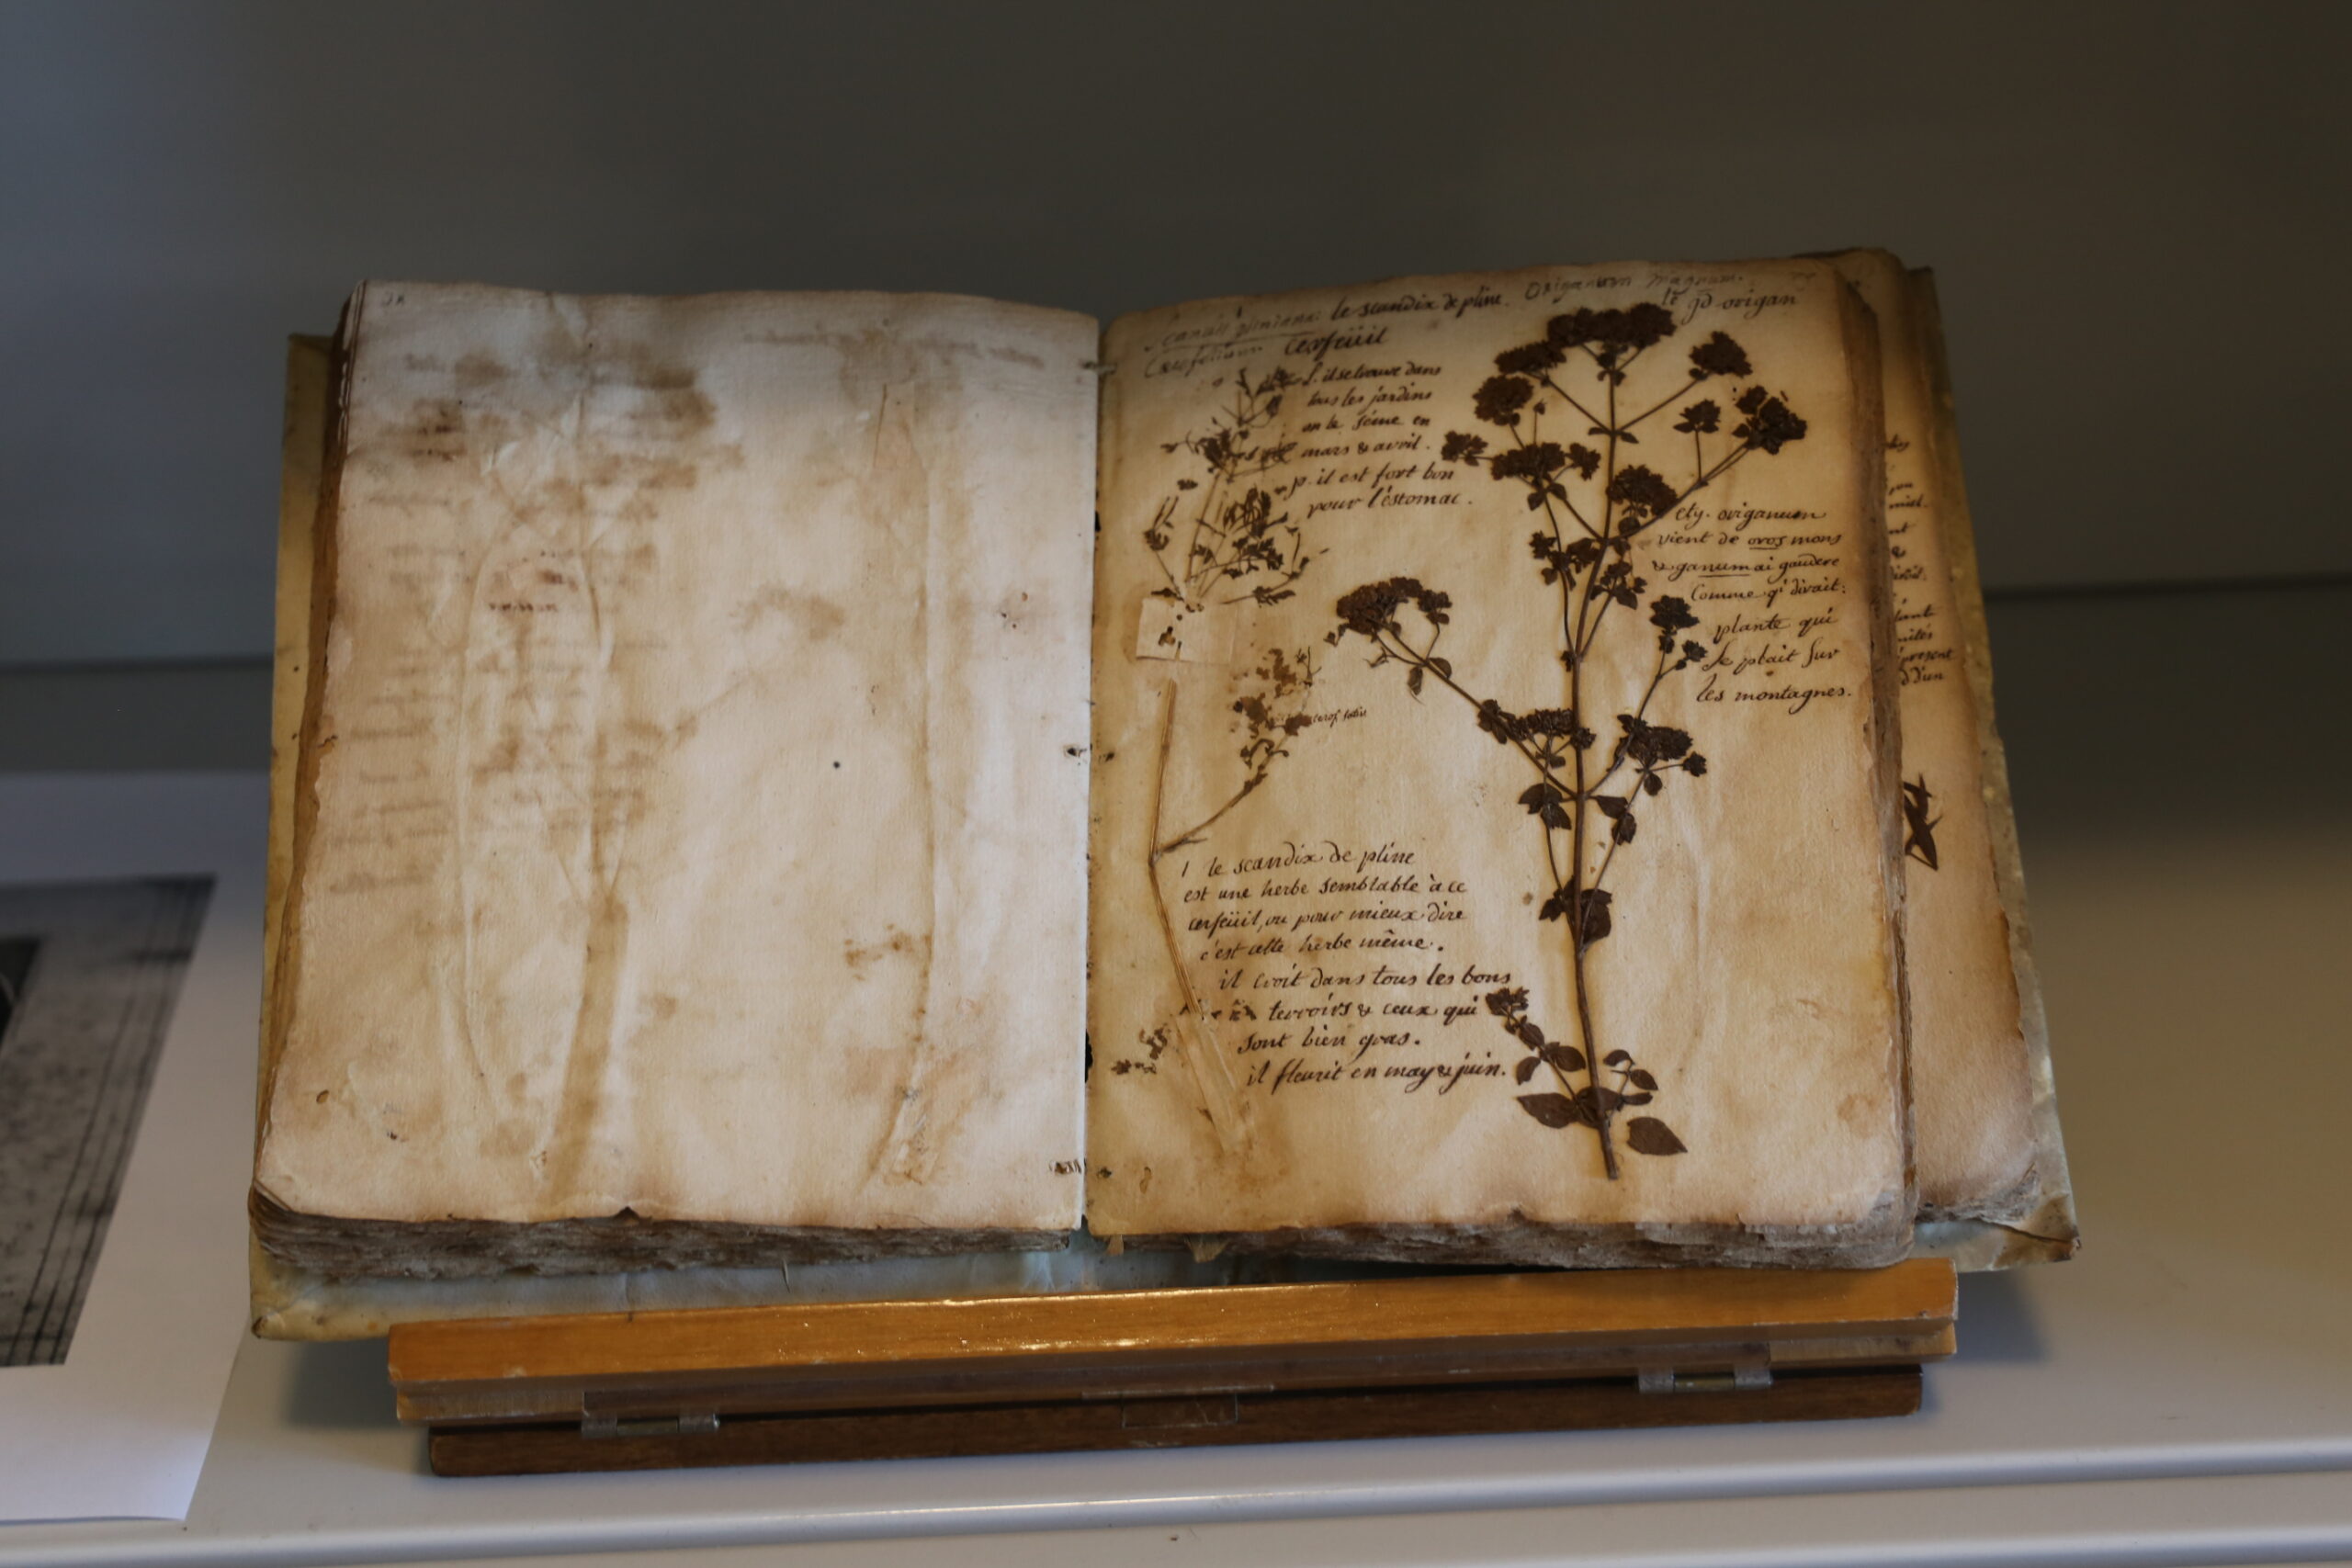 le scandix de pline.
Cerfolium cerfeüil
l. il se trouve dans
tous les jardins
on le séme en
mars & avril.
p. il est fort bon
pour l'éstomac.
Origanum magnum.
le gd origan
ety. origanum
vient de oros mons
& ganumai gaudere
Comme qi dirait:
plante qui
se plait sur
les montagnes.
1 le scandix de pline
est une herbe semblable à ce
cerfeüil, ou pour mieux dire
c'est cette herbe même.
il croit dans tous les bons
terroirs & ceux qui
sont bien gras.
il fleurit en may & juin.